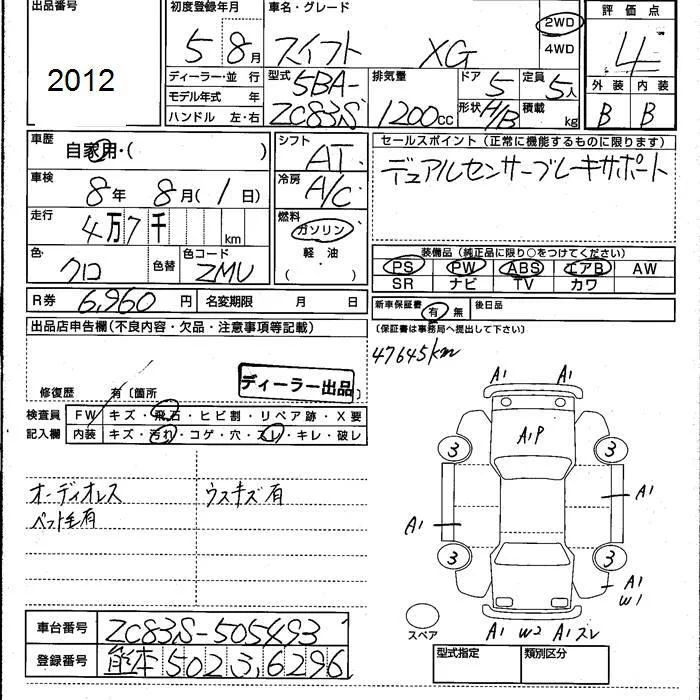 出品番号
2012
初度登録年月
5 8月
車名・グレード
スイフト XG
2WD
4WD
評価点
4
外装 内装
B B
ディーラー・並 行
モデル年式 年
ハンドル 左・右
型式
5BA-
ZC83S
排気量
1200cc
ドア 5
定員 5人
形状 H/B
積載 kg
車歴
自家用・( )
車検
8年 8月(1日)
走行
4万7千 km
色
クロ
色替
色コード
ZMV
シフト
AT
冷房
A/C
燃料
ガソリン
軽油
( )
セールスポイント(正常に機能するものに限ります)
デュアルセンサーブレーキサポート
装備品(純正品に限り○をつけてください)
PS PW ABS エアB AW
SR ナビ TV カワ
R券 6,960円
名変期限 月 日
新車保証書 有 無
後日品
(保証書は事務局へ提出して下さい)
出品店申告欄(不良内容・欠品・注意事項等記載)
ディーラー出品
修復歴 有〔箇所
47645km
検査員
記入欄
FW キズ・飛石・ヒビ割・リペア跡・X要
内装 キズ・汚れ・コゲ・穴・スレ・キレ・破レ
オーディオレス
ペット毛有
ウスキズ有
A1 A1
A1P
3 3
A1
A1
3 3
A1
W1
スペア
A1 W2 A1スレ
車台番号 ZC83S-505493
登録番号 熊本 502 う 6296
型式指定
類別区分